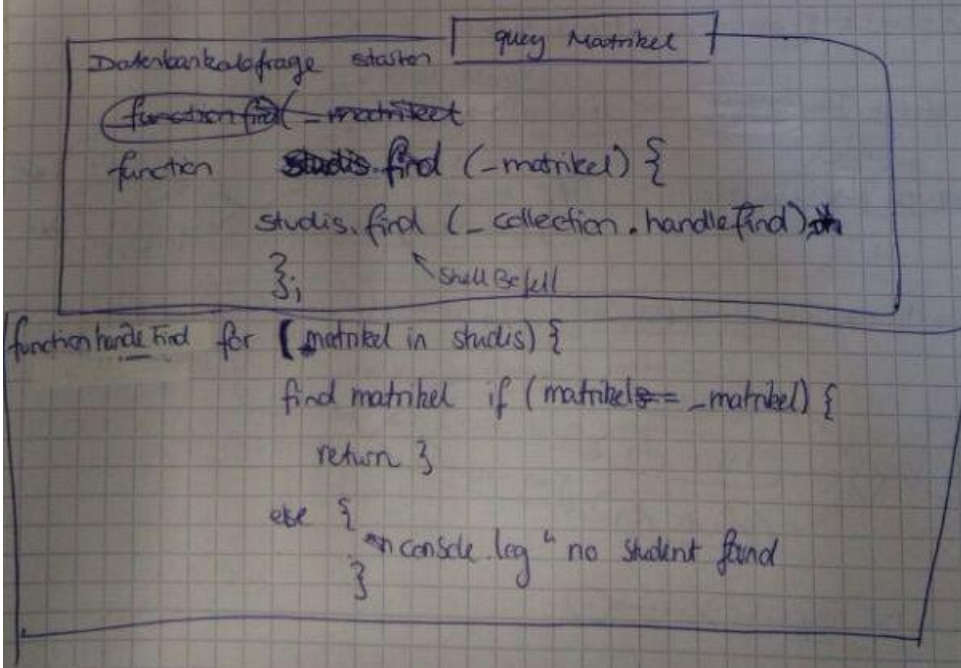 query Matrikel
Datenbankabfrage starten
function find( _matrikel
function studis.find (_matrikel) {
studis.find (_collection.handleFind)
};
Shell Befell
function handle Find for ( matrikel in studis) {
find matrikel if (matrikel == _matrikel) {
return }
else {
console.log " no student found
}